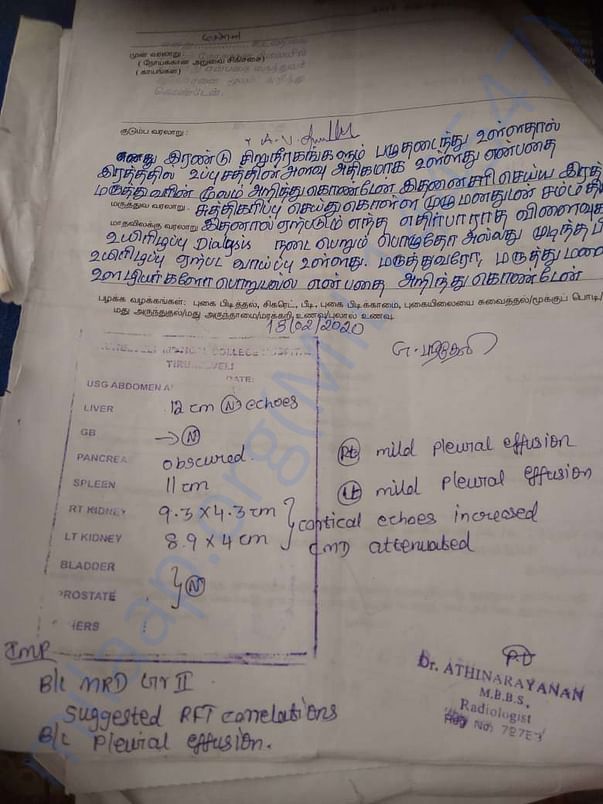 முன் வரலாறு
( நோய்க்கான அறுவை சிகிச்சை)
( காயங்கள்)
குடும்ப வரலாறு :
எனது இரண்டு சிறுநீரகங்களும் பழுதடைந்து உள்ளதால்
இரத்தத்தில் உப்பு சத்தின் அளவு அதிகமாக உள்ளது என்பதை
மருத்துவரின் மூலம் அறிந்து கொண்டேன் இதனை சரி செய்ய இரத்
மருத்துவ வரலாறு : சுத்திகரிப்பு செய்து கொள்ள முழு மனதுடன்
மாதவிலக்கு வரலாறு இதனால் ஏற்படும் எந்த எதிர்பாராத விளைவுக
உயிரிழப்பு Dialysis நடைபெறும் பொழுதோ அல்லது முடிந்த பி
உயிரிழப்பு ஏற்பட வாய்ப்பு உள்ளது. மருத்துவரோ, மருத்துமனை
ஊழியர்களோ பொறுப்பல்ல என்பதை அறிந்து கொண்டேன்
பழக்க வழக்கங்கள்: புகை பிடித்தல், சிகரெட், பீடி, புகை பிடிக்காமை, புகையிலையை சுவைத்தல்/மூக்குப் பொடி/
மது அருந்துதல்/மது அருந்தாமை/மரக்கறி உணவு/புலால் உணவு.
18/02/2020
COLLEGE HOSPITAL
TIRUNELVELI
USG ABDOMEN A DATE:
LIVER 12 cm (N) echoes
GB → (N)
PANCREA obscured.
SPLEEN 11 cm
RT KIDNEY 9.3 x 4.3 cm
LT KIDNEY 8.9 x 4 cm
cortical echoes increased
CMD attenuated
BLADDER
PROSTATE (N)
HERS :
(Rt) mild pleural effusion
(Lt) mild pleural effusion
IMP
B/L MRD Gr II
Suggested RFT correlations
B/L pleural effusion.
Dr. ATHINARAYANAN
M.B.B.S.
Radiologist
milaap.org